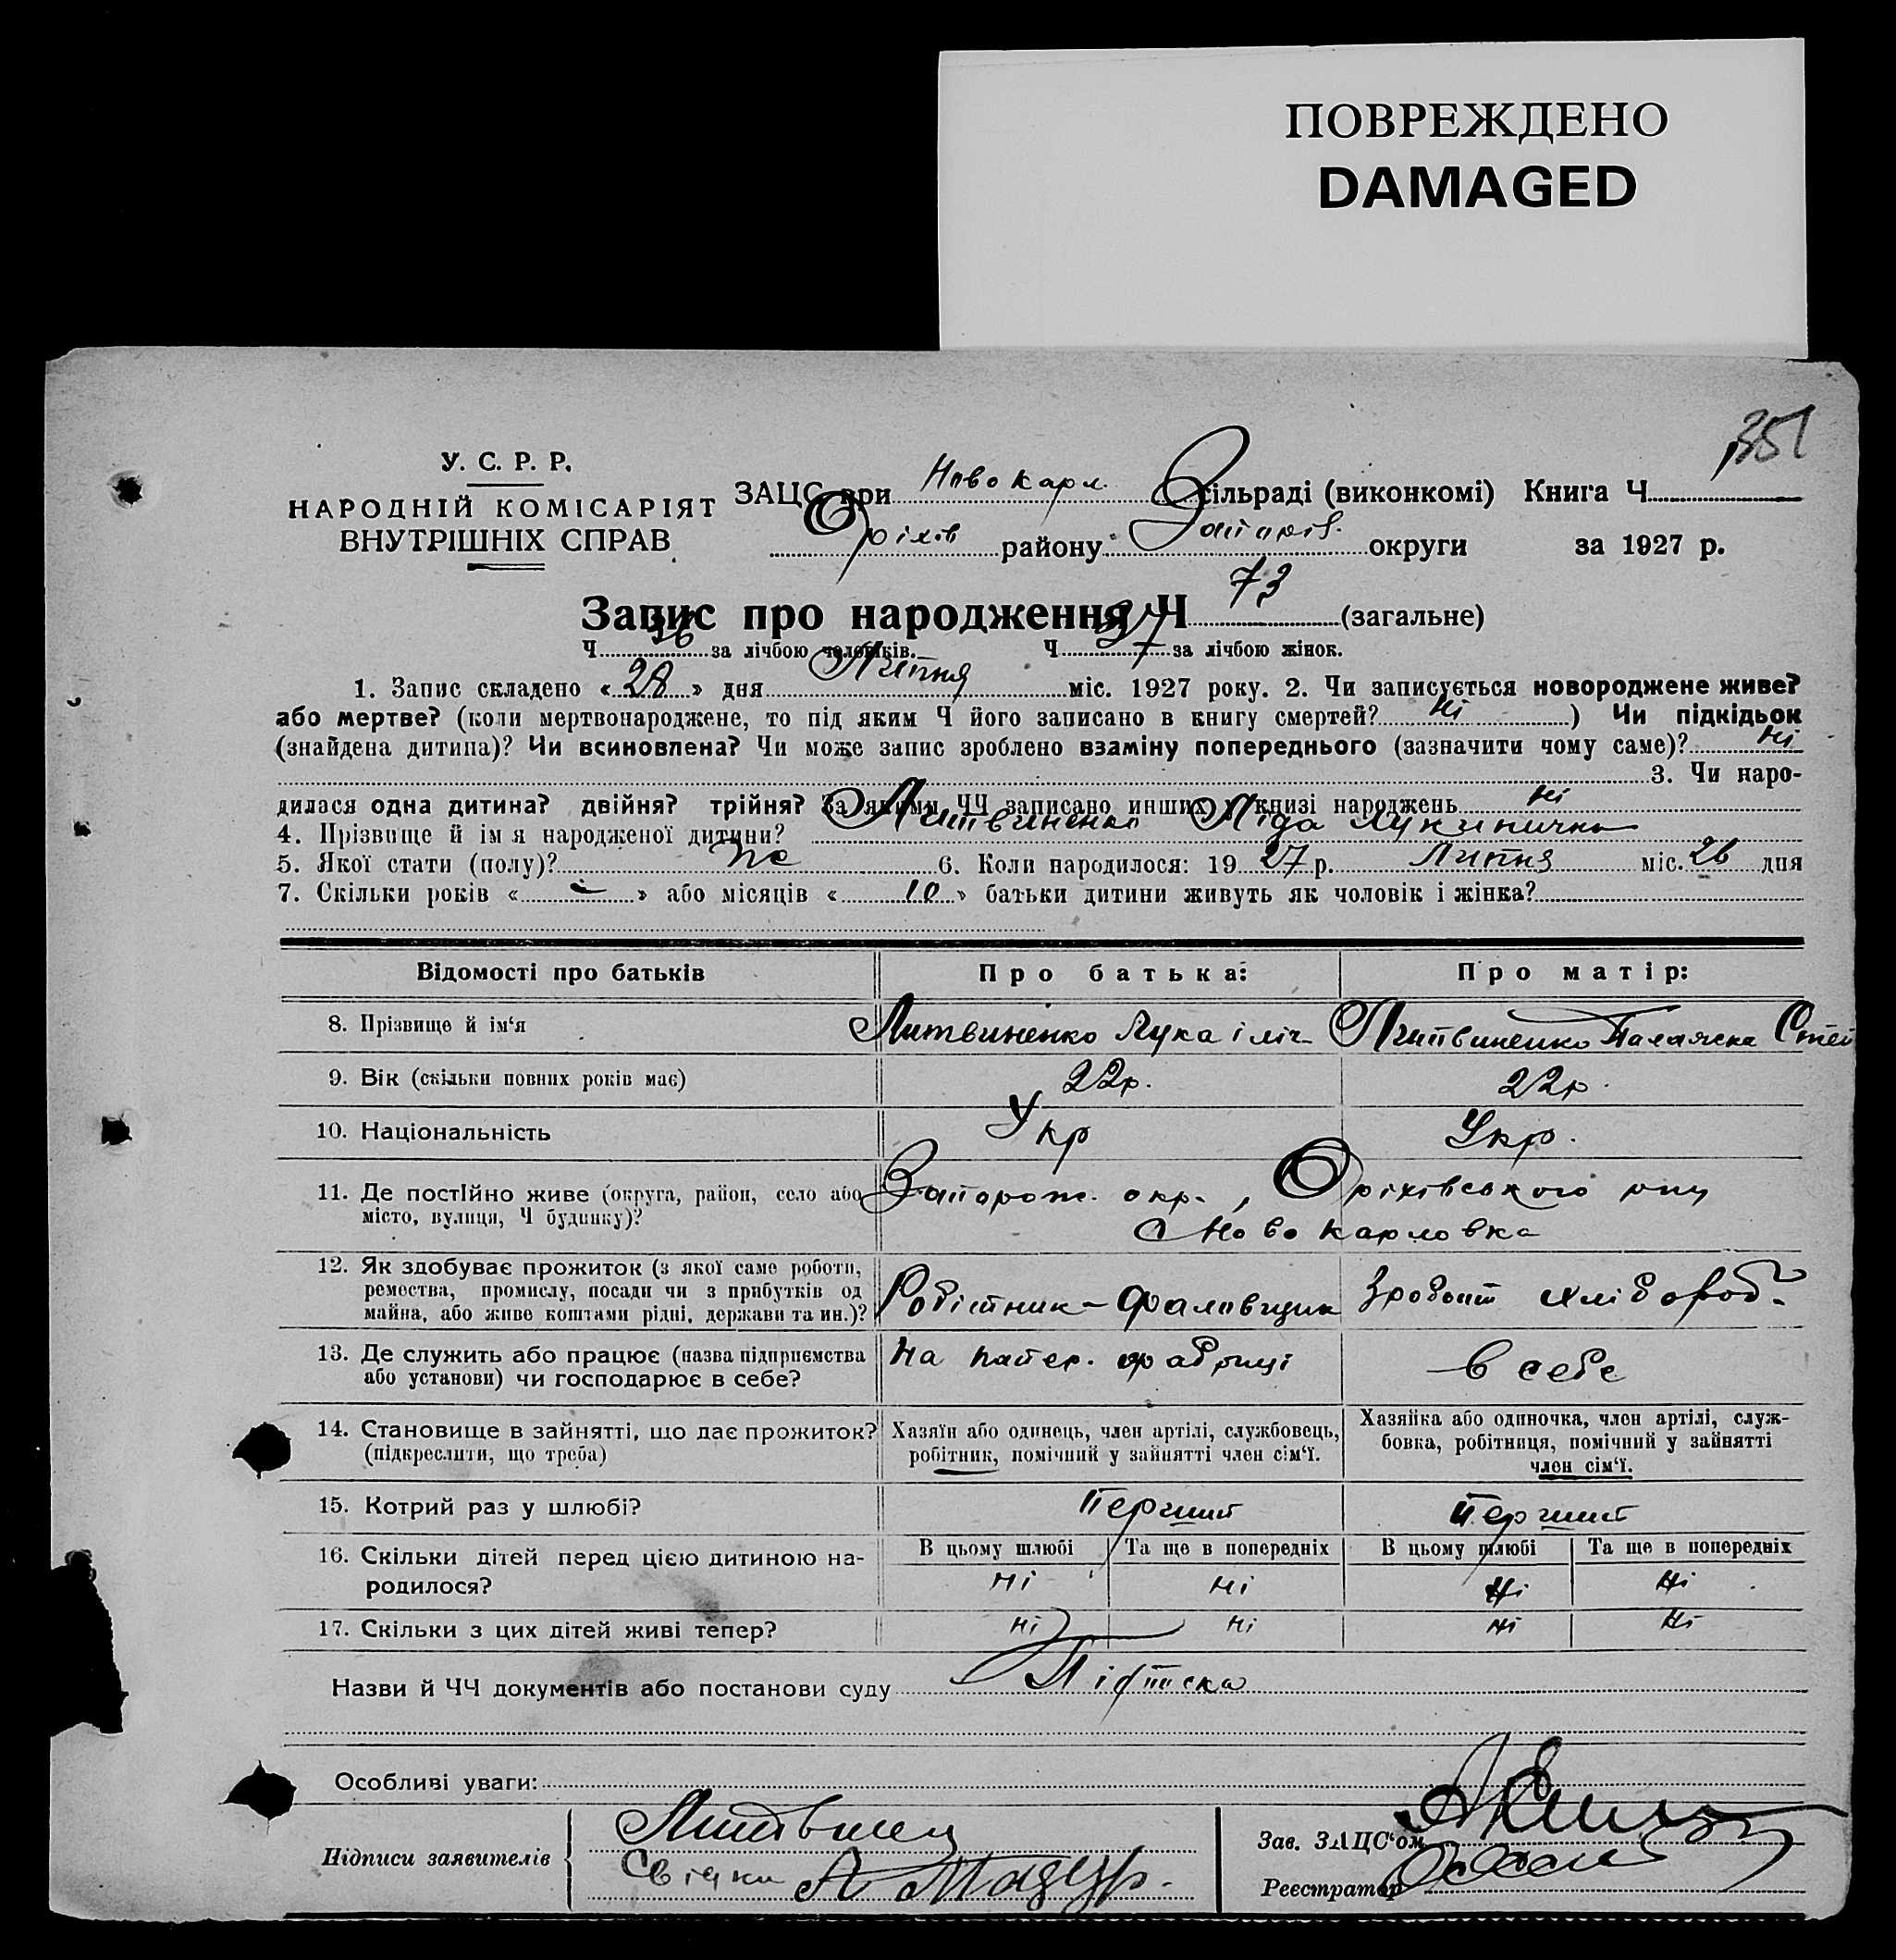 ПОВРЕЖДЕНО
DAMAGED
351
У. С. Р. Р.
НАРОДНІЙ КОМІСАРІЯТ
ВНУТРІШНІХ СПРАВ
ЗАЦС при Ново карл. сільраді (виконкомі) Книга Ч
Оріхів району округи за 1927 р.
Запис про народження Ч 73 (загальне)
Ч 36 за лічбою чоловіків. Ч 37 за лічбою жінок.
1. Запис складено «28» дня Липня міс. 1927 року. 2. Чи записується новороджене живе?
або мертве? (коли мертвонароджене, то під яким Ч його записано в книгу смертей? ні ) Чи підкідьок
(знайдена дитина)? Чи всиновлена? Чи може запис зроблено взаміну попереднього (зазначити чому саме)? ні
3. Чи наро-
дилася одна дитина? двійня? трійня? За якими ЧЧ записано инших у книзі народжень ні
4. Прізвище й ім я народженої дитини? Литвиненко Ліда
5. Якої стати (полу)? 6. Коли народилося: 1927 р. Липня міс. 26 дня
7. Скільки років « » або місяців « 10 » батьки дитини живуть як чоловік і жінка?
Відомості про батьків Про батька: Про матір:
8. Прізвище й ім‘я Литвиненко Лука іліч Литвиненко
9. Вік (скільки повних років має) 22р. 22р.
10. Національність Укр Укр.
11. Де постійно живе (округа, район, село або Запорож. окр., Оріхівського
місто, вулиця, Ч будинку)? Ново карловка
12. Як здобуває прожиток (з якої саме роботи,
ремества, промислу, посади чи з прибутків од
майна, або живе коштами рідні, держави та ин.)? Робітник-
13. Де служить або працює (назва підприємства на папер. фабриці в себе
або установи) чи господарює в себе?
14. Становище в зайнятті, що дає прожиток? Хазяїн або одинець, член артілі, службовець, Хазяйка або одиночка, член артілі, служ-
(підкреслити, що треба) робітник, помічний у зайнятті член сім‘ї. бовка, робітниця, помічний у зайнятті
член сім‘ї.
15. Котрий раз у шлюбі? Перший Перший
16. Скільки дітей перед цією дитиною на- В цьому шлюбі Та ще в попередніх В цьому шлюбі Та ще в попередніх
родилося? ні ні ні ні
17. Скільки з цих дітей живі тепер? ні ні ні ні
Назви й ЧЧ документів або постанови суду Підписка
Особливі уваги:
Підписи заявителів
Зав. ЗАЦС‘ом
Реєстратор